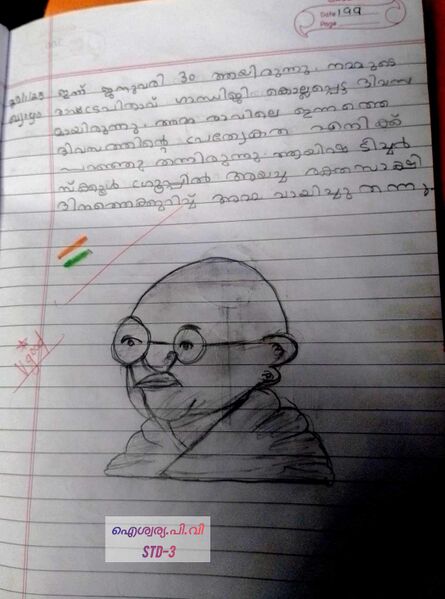 Date 199
Page
ഇന്ന് ജനുവരി 30 ആയിരുന്നു. നമ്മുടെ
രാഷ്ട്രപിതാവ് ഗാന്ധിജി കൊല്ലപ്പെട്ട ദിവസ
മായിരുന്നു അമ്മ രാവിലെ ഇന്നത്തെ
ദിവസത്തിന്റെ പ്രത്യേകത എനിക്ക്
പറഞ്ഞു തന്നിരുന്നു. ആയിഷ ടീച്ചർ
സ്ക്കൂൾ ഗ്രൂപ്പിൽ അയച്ച രക്തസാക്ഷി
ദിനത്തെക്കുറിച്ച് അമ്മ വായിച്ചു തന്നു.
V.good
ഐശ്വര്യ.പി.വി
STD-3